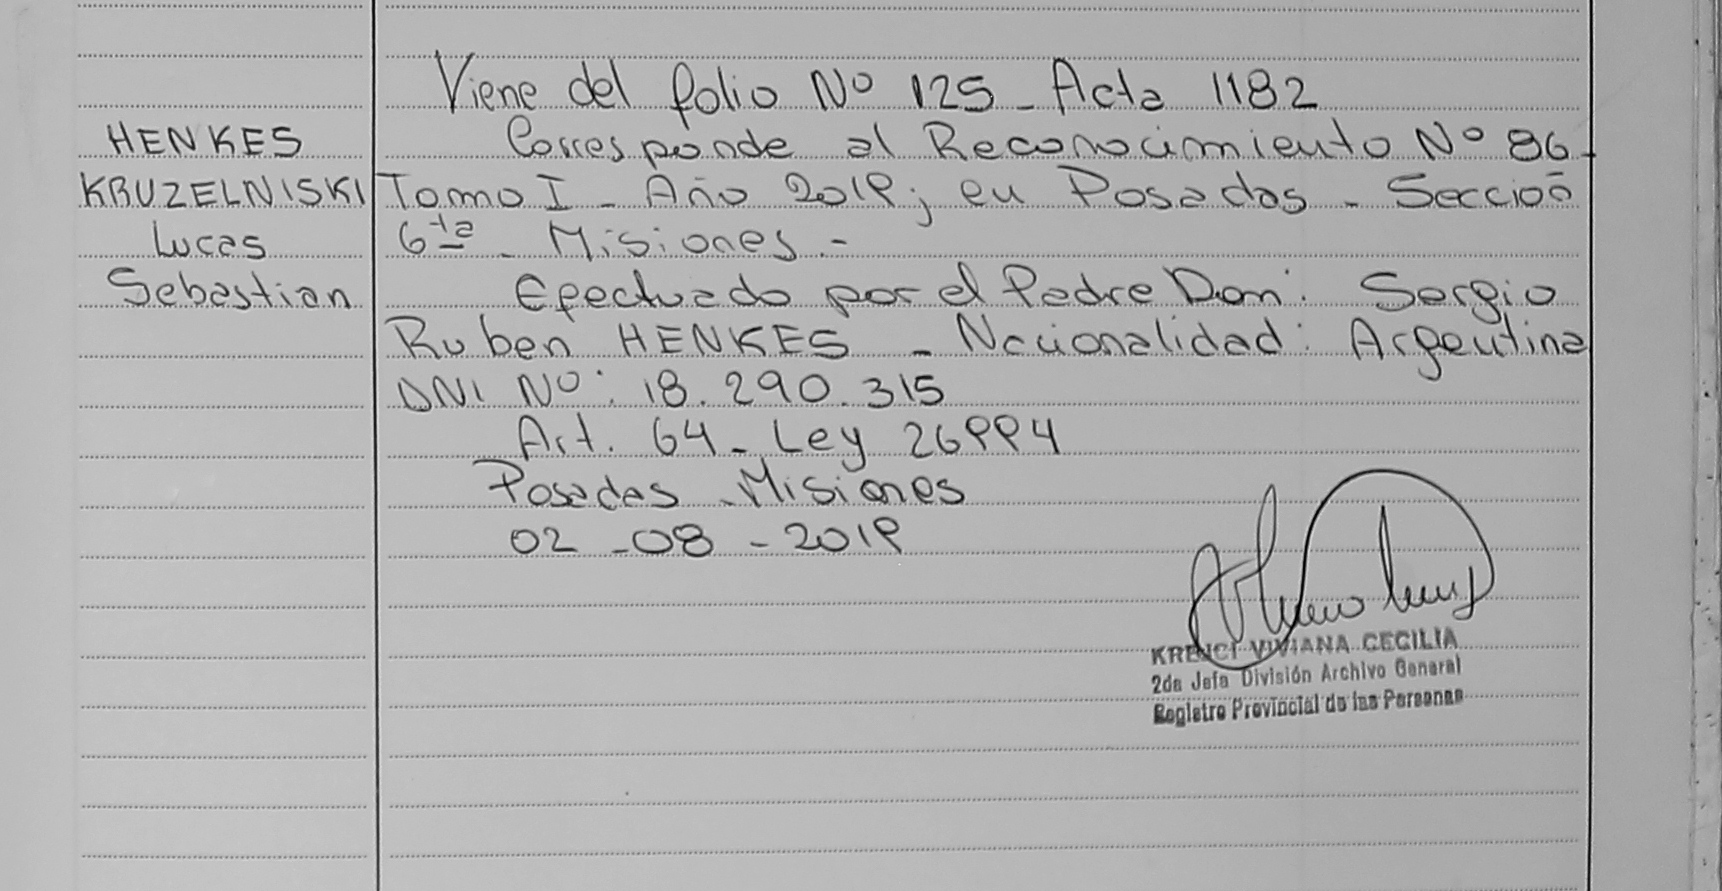 Viene del folio Nº 125 - Acta 1182
HENKES
KRUZELNISKI
Lucas
Sebastian
Corresponde al Reconocimiento Nº 86 -
Tomo I - Año 2019; en Posadas - Sección
6ta - Misiones -
Efectuado por el Padre Don: Sergio
Ruben HENKES - Nacionalidad: Argentina
DNI Nº: 18.290.315
Art. 64 - Ley 26994
Posadas - Misiones
02 - 08 - 2019
KRENCI VIVIANA CECILIA
2da Jefa División Archivo General
Registro Provincial de las Personas